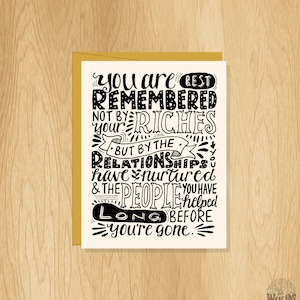 you are BEST
REMEMBERED
NOT BY
your RICHES
BUT BY THE
RELATIONSHIPS YOU
have nurtured
& THE PEOPLE YOU HAVE
helped
LONG BEFORE
you're gone.